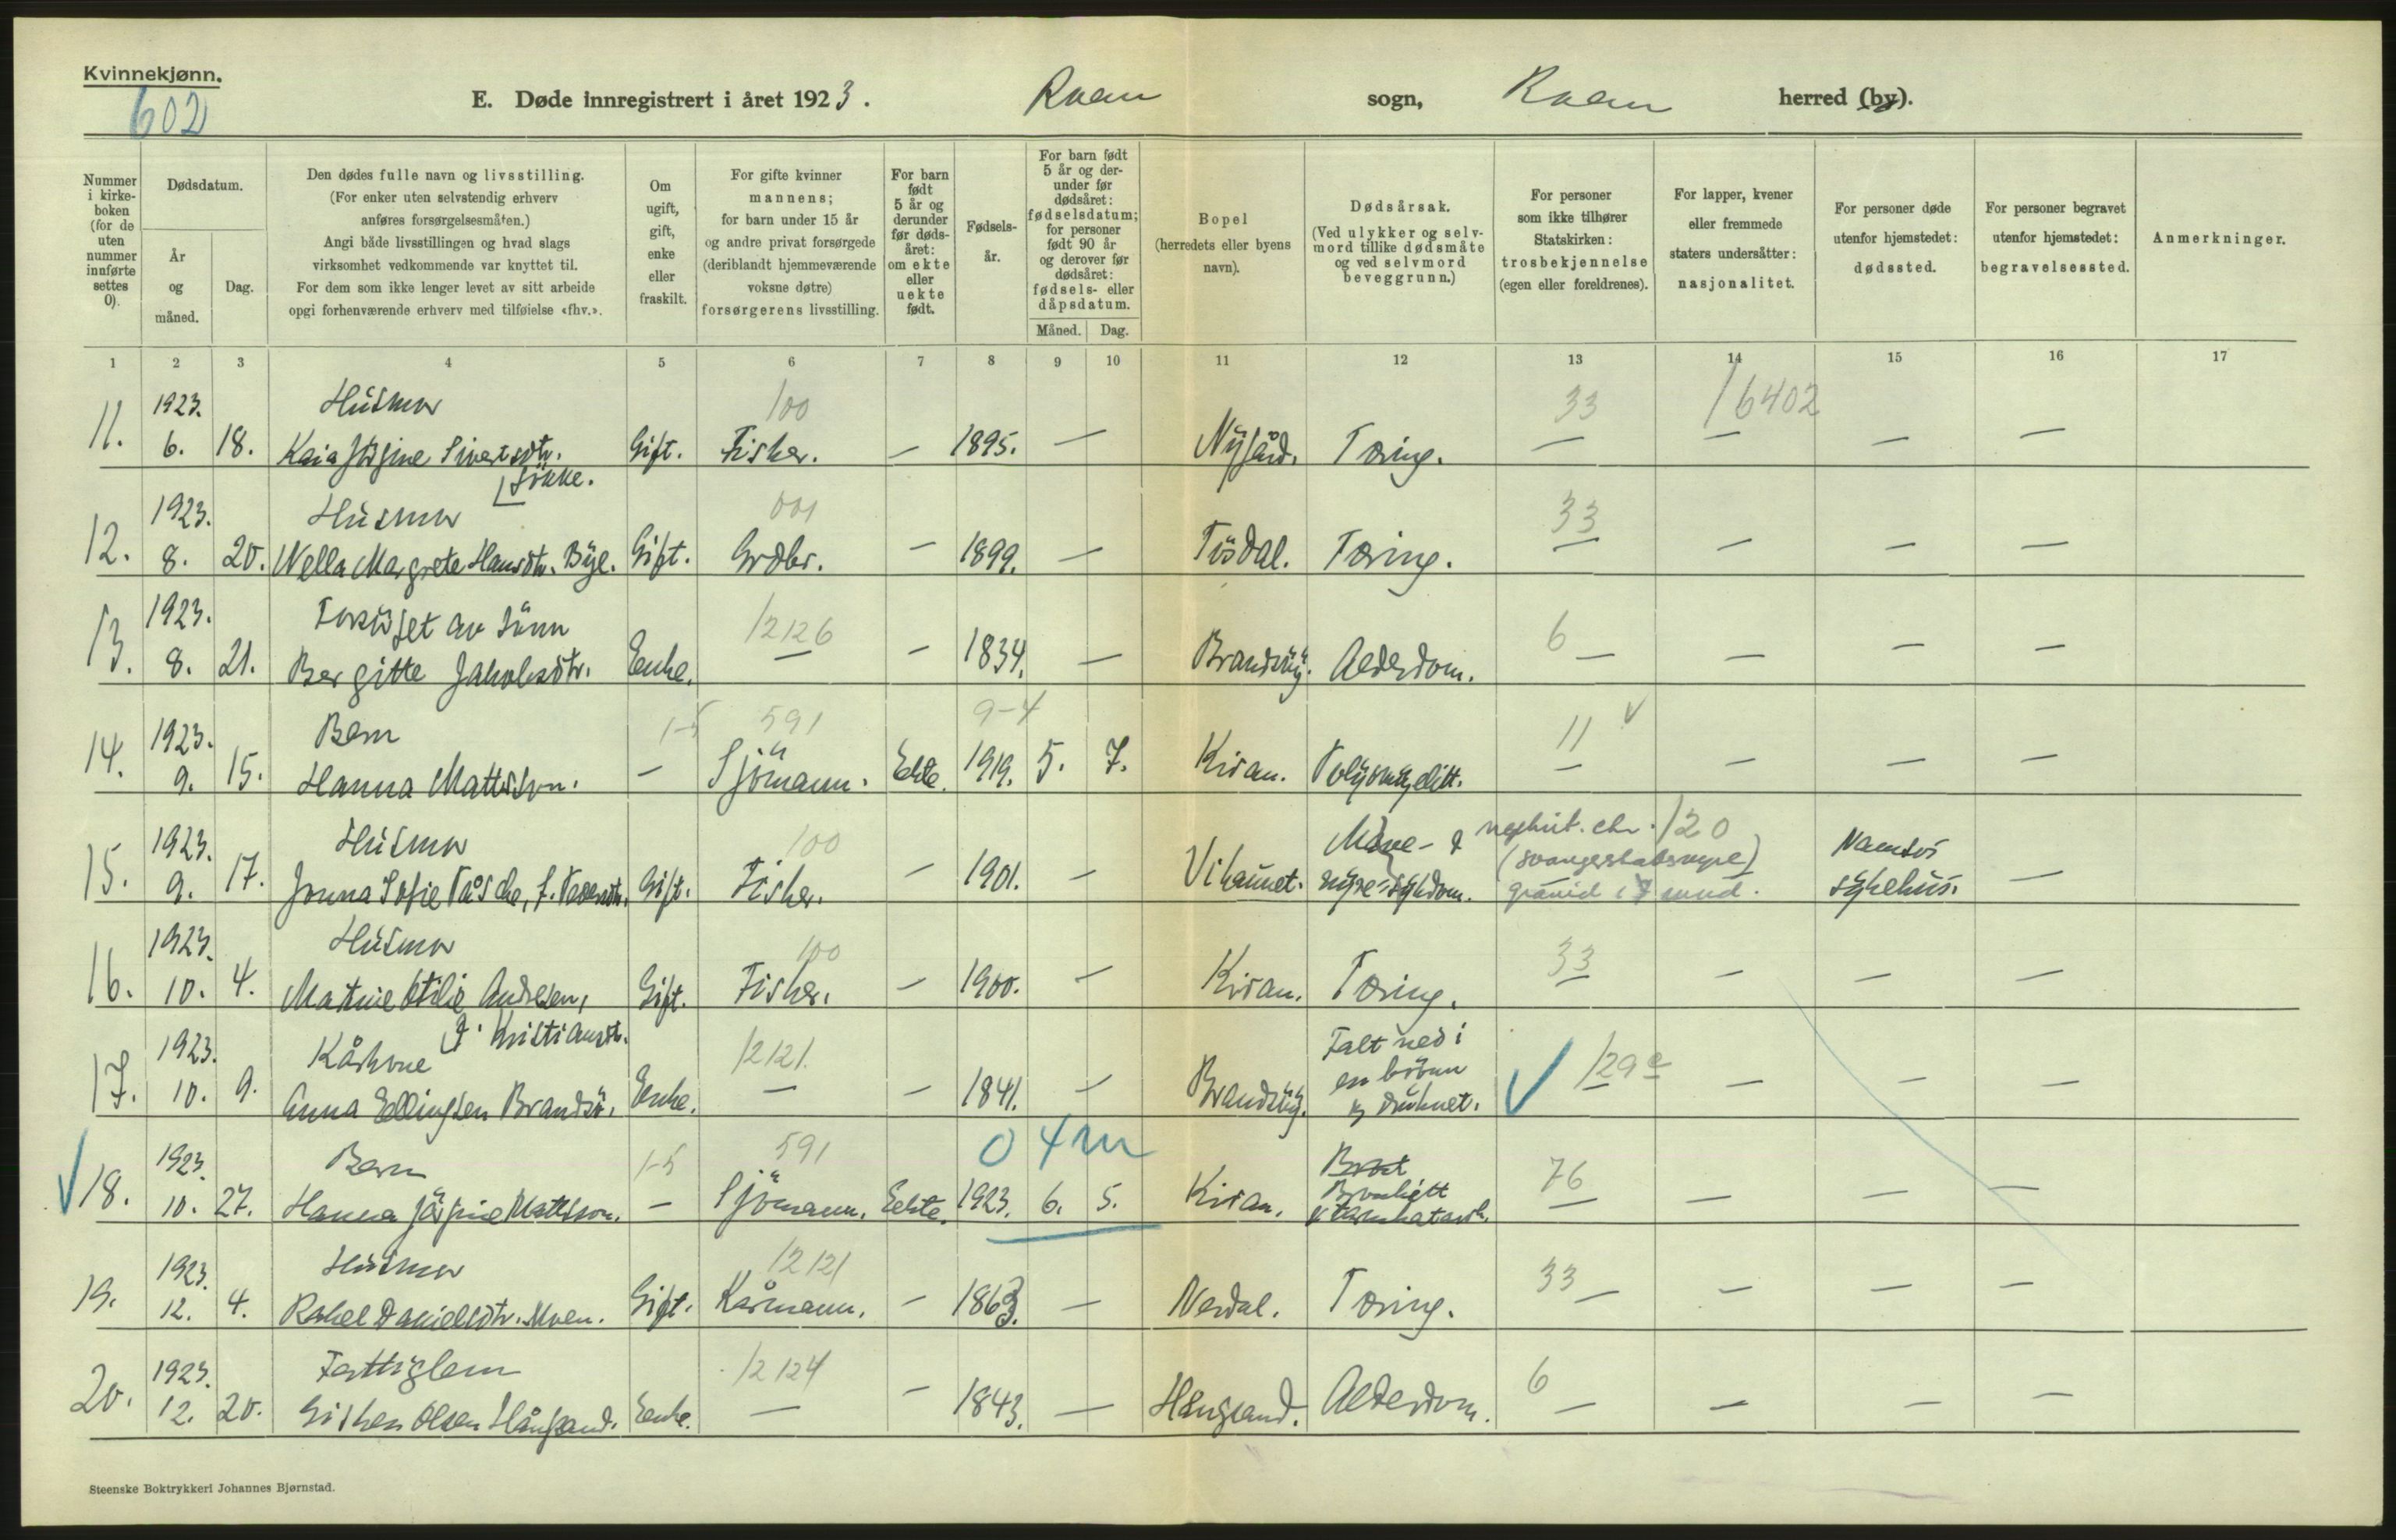 Kvinnekjønn.
602
E. Døde innregistrert i året 1923. Roan sogn, Roan herred (by).
Nummer i kirke-boken (for de uten nummer innførte settes 0).
Dødsdatum.
År og måned.
Dag.
Den dødes fulle navn og livsstilling.
(For enker uten selvstendig erhverv anføres forsørgelsesmåten.)
Angi både livsstillingen og hvad slags virksomhet vedkommende var knyttet til.
For dem som ikke lenger levet av sitt arbeide opgi forhenværende erhverv med tilføielse «fhv.».
Om ugift, gift, enke eller fraskilt.
For gifte kvinner mannens; for barn under 15 år og andre privat forsørgede (deriblandt hjemmeværende voksne døtre) forsørgerens livsstilling.
For barn født 5 år og derunder før døds-året: om ekte eller uekte født.
Fødsels-år.
For barn født 5 år og der-under før dødsåret: fødselsdatum; for personer født 90 år og derover før dødsåret: fødsels- eller dåpsdatum.
Måned. Dag.
Bopel (herredets eller byens navn).
Dødsårsak.
(Ved ulykker og selv-mord tillike dødsmåte og ved selvmord beveggrunn.)
For personer som ikke tilhører Statskirken: trosbekjennelse (egen eller foreldrenes).
For lapper, kvener eller fremmede staters undersåtter: nasjonalitet.
For personer døde utenfor hjemstedet: dødssted.
For personer begravet utenfor hjemstedet: begravelsessted.
Anmerkninger.
1 2 3 4 5 6 7 8 9 10 11 12 13 14 15 16 17
1923. Husmor 100 33 16402
11. 6. 18. Kaia Sivertsdtr. Gift. Fisker. — 1895. — Nygård. Tæring. — — — —
Husmor
1923. 001 33
12. 8. 20. Nella Margrete Hansdtr. Bye. Gift. Grdbr. — 1899. — Tæring. — — — —
1923. Forsørget av sønn 12126 6
13. 8. 21. Bergitte Jakobsdtr. Enke. — — 1834. — Alderdom. — — — —
1923. Barn 1-5 591 9-4 11 √
14. 9. 15. Hanna Mattisson. — Sjömann. Ekte. 1919. 5. 7. Kiran. Polyomyelitt. — — — —
1923. Husmor 100 Mave- & nephrit. chr. 120 Namsos
15. 9. 17. Gift. Fisker. — 1901. — nyresykdom. (svangerskabsnyre) gravid i 7 mnd. sykehus. —
1923. Husmor 100 33
16. 10. 4. Martine Otilie Andresen, Gift. Fisker. — 1900. — Kiran. Tæring. — — — —
f. Kristiansdtr.
1923. Kårkone 12121. Falt ned i en brönn 129
17. 10. 9. Anna Ellingsen Brandsö. Enke. — — 1841. — og druknet. — — — —
0 4 m
1923. Barn 1-5 591 76
18. 10. 27. Hanna Mattisson. — Sjömann. Eekte. 1923. 6. 5. Kiran. Bronkitt & tarmkatarrh. — — — —
1923. Husmor 12121 33
19. 12. 4. Rakel Danielsdtr. Moen. Gift. Kårmann. — 1863. — Nerdal. Tæring. — — — —
1923. Fattiglem 12124 6
20. 12. 20. Olsen Enke. — — 1843. — Alderdom. — — — —
Steenske Boktrykkeri Johannes Bjørnstad.